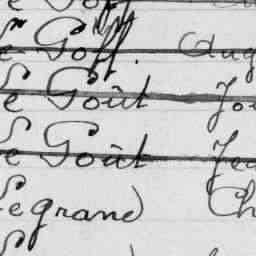 Le Goff. Aug
Le Goût Jo
Le Goût Je
Legrand Ch